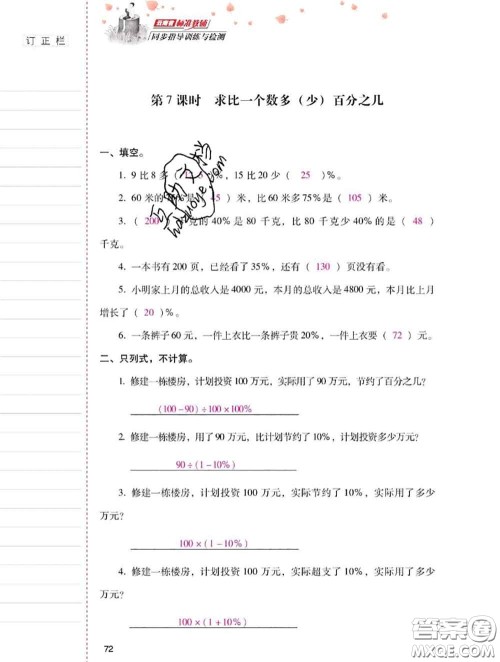 订正栏
标准教辅
同步指导训练与检测
第7课时 求比一个数多（少）百分之几
一、填空。
1. 9比8多（ 5 ）%，15比20少（ 25 ）%。
2. 60米的 %是（ 45 ）米，比60米多75%是（ 105 ）米。
3.（ 200 ）克的40%是80千克，比80千克少40%的是（ 48 ）
千克。
4. 一本书有200页，已经看了35%，还有（ 130 ）页没有看。
5. 小明家上月的总收入是4000元，本月的总收入是4800元，本月比上月
增长了（ 20 ）%。
6. 一条裤子60元，一件上衣比一条裤子贵20%，一件上衣要（ 72 ）元。
二、只列式，不计算。
1. 修建一栋楼房，计划投资100万元，实际用了90万元，节约了百分之几？
(100－90)÷100×100%
2. 修建一栋楼房，用了90万元，比计划节约了10%，计划投资多少万元？
90÷(1－10%)
3. 修建一栋楼房，计划投资100万元，实际节约了10%，实际用了多少
万元？
100×(1－10%)
4. 修建一栋楼房，计划投资100万元，实际超支了10%，实际用了多少
万元？
100×(1＋10%)
72
互助文档
hdzuoye.com
答案圈
MXQE.COM